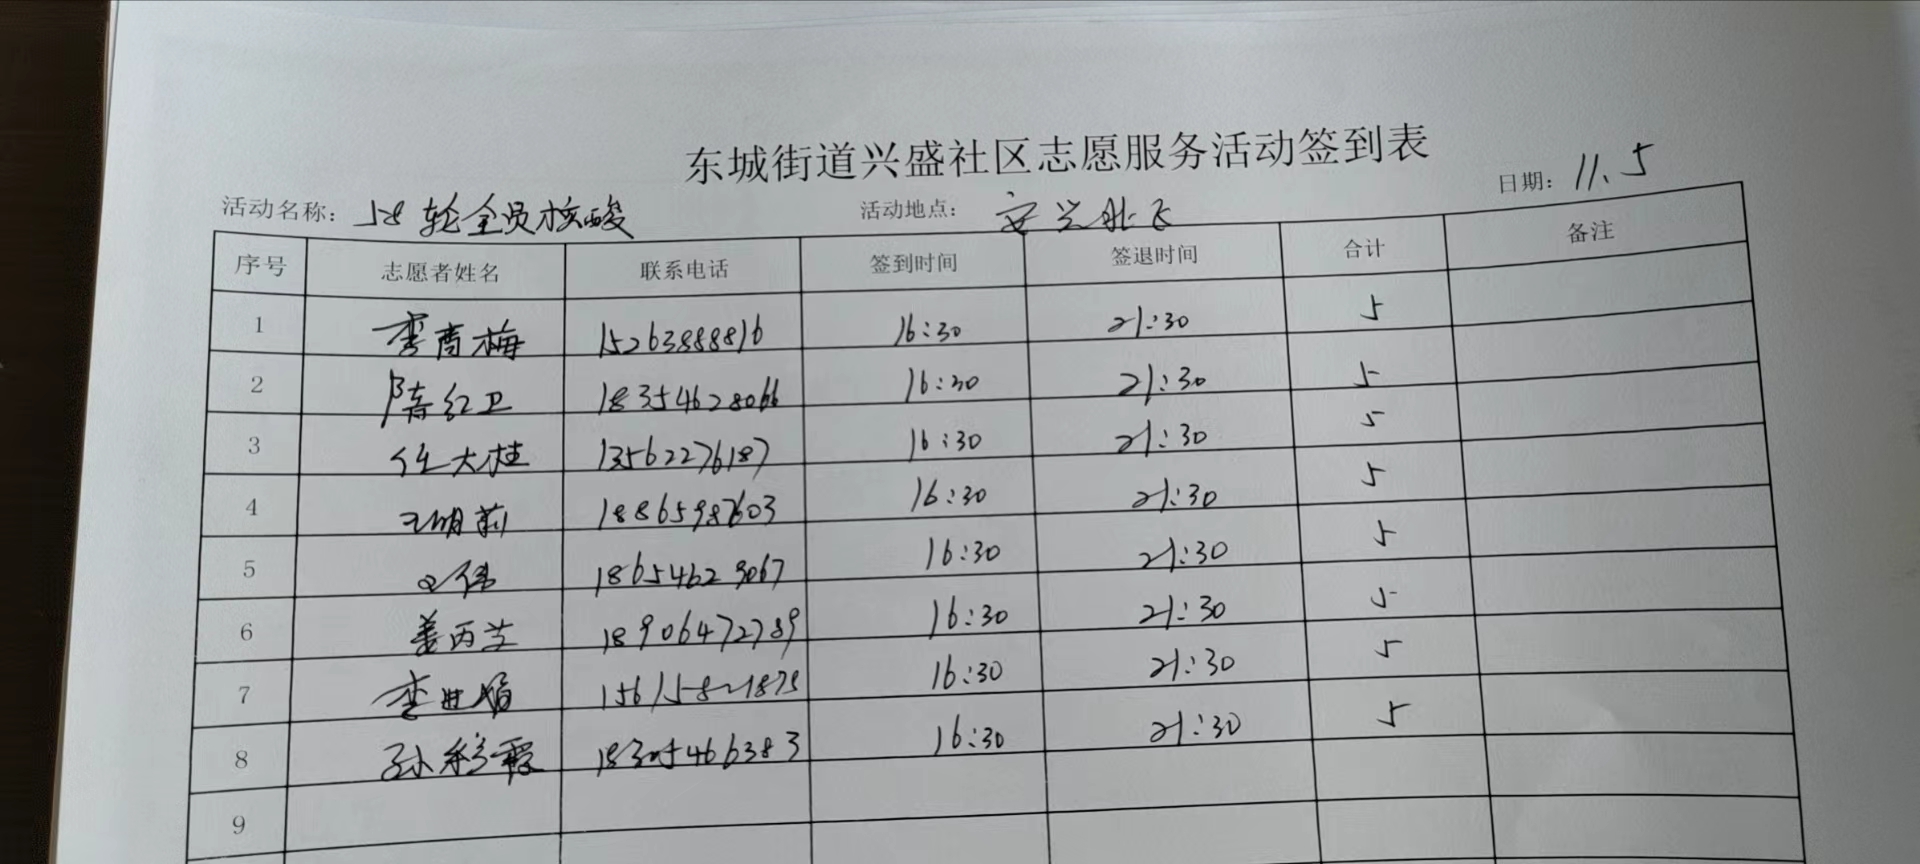 东城街道兴盛社区志愿服务活动签到表
活动名称: 58轮全员核酸 活动地点: 安兴北区 日期: 11.5
序号 志愿者姓名 联系电话 签到时间 签退时间 合计 备注
1 李商梅 15263888816 16:30 21:30 5
2 隋红卫 18354628066 16:30 21:30 5
3 任大桂 13562276187 16:30 21:30 5
4 王明莉 18865987603 16:30 21:30 5
5 18654629067 16:30 21:30 5
6 姜丙兰 18906472789 16:30 21:30 5
7 李 16:30 21:30 5
8 孙彩霞 16:30 21:30 5
9